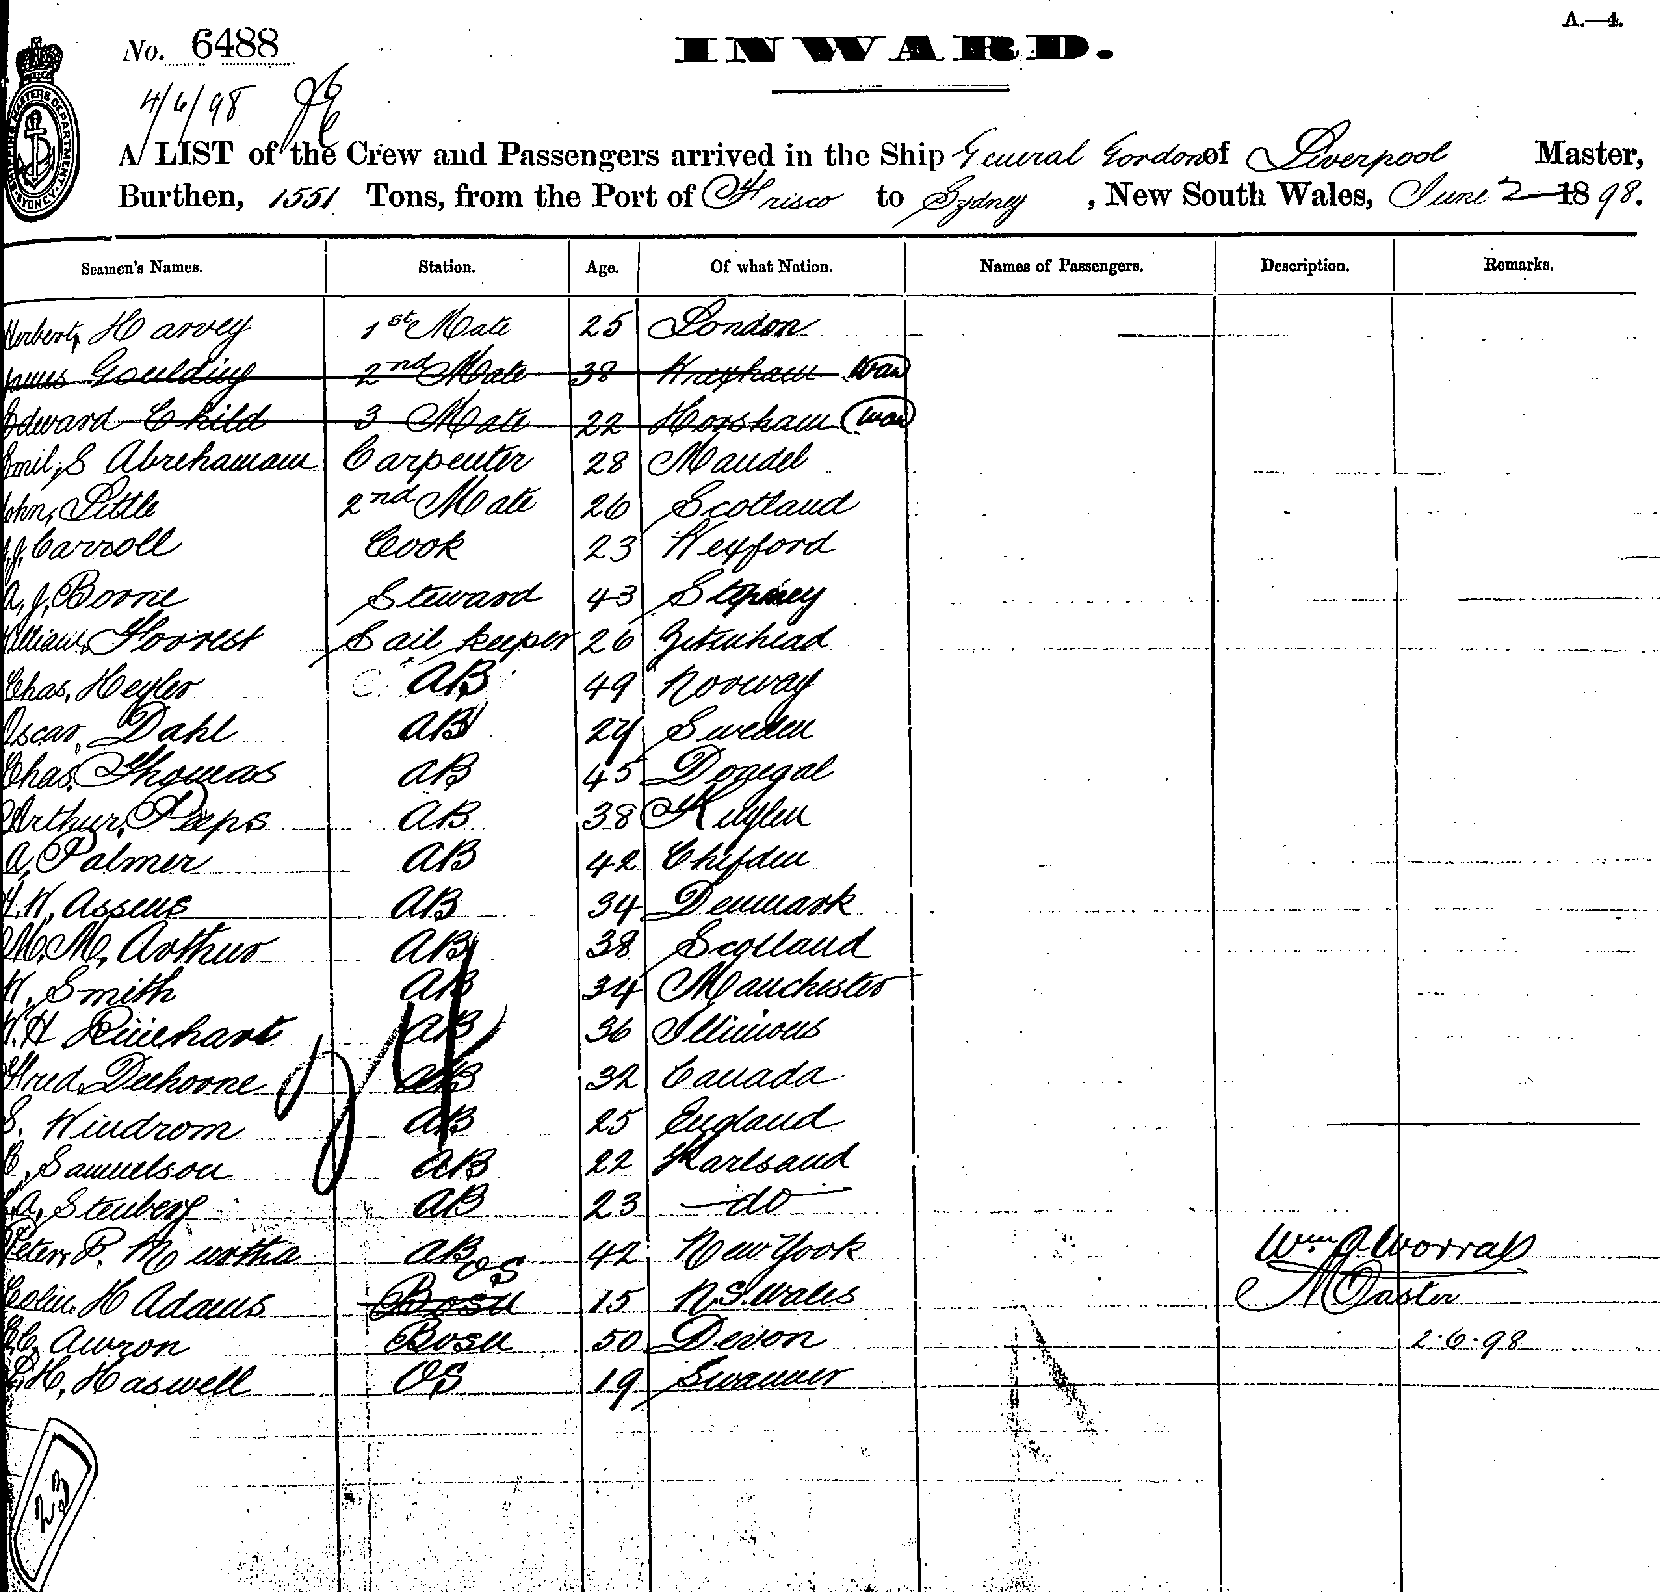 A.—4.
No. 6488
INWARD.
4/6/98
A LIST of the Crew and Passengers arrived in the Ship General Gordon of Liverpool Master,
Burthen, 1551 Tons, from the Port of Frisco to Sydney, New South Wales, June 2 1898.
Seamen's Names. Station. Age. Of what Nation. Names of Passengers. Description. Remarks.
Herbert, Harvey 1st Mate 25 London
James Goulding 2nd Mate 38 Wrexham
Edward Child 3 Mate 22 Horsham
Emil, S Abrehamam Carpenter 28 Mandel
John, Little 2nd Mate 26 Scotland
J. Carroll Cook 23 Wexford
A, J, Boone Steward 43 Stepney
William, Forrest Sail keeper 26
Chas, Heyler AB 49 Norway
Oscar, Dahl AB 24 Sweden
Chas, Thomas AB 45 Donegal
Arthur, Peeps AB 38
A, Palmer AB 42
W, Assens AB 34 Denmark
M. M, Arthur AB 38 Scotland
W, Smith AB 34 Manchester
H Rinehart AB 36 Illinious
Fred, Dehorne AB 32 Canada
S. Windrom AB 25 England
C, Samuelson AB 22 Karlsand
A, Stenberg AB 23 —do—
Peter, P. Murtha AB 42 New York
Wm A Worrall
Colin. H Adams OS Bosn 15 N.S. Wales
Master
C, Awron Bosn 50 Devon 2.6.98
H, Haswell OS 19
23